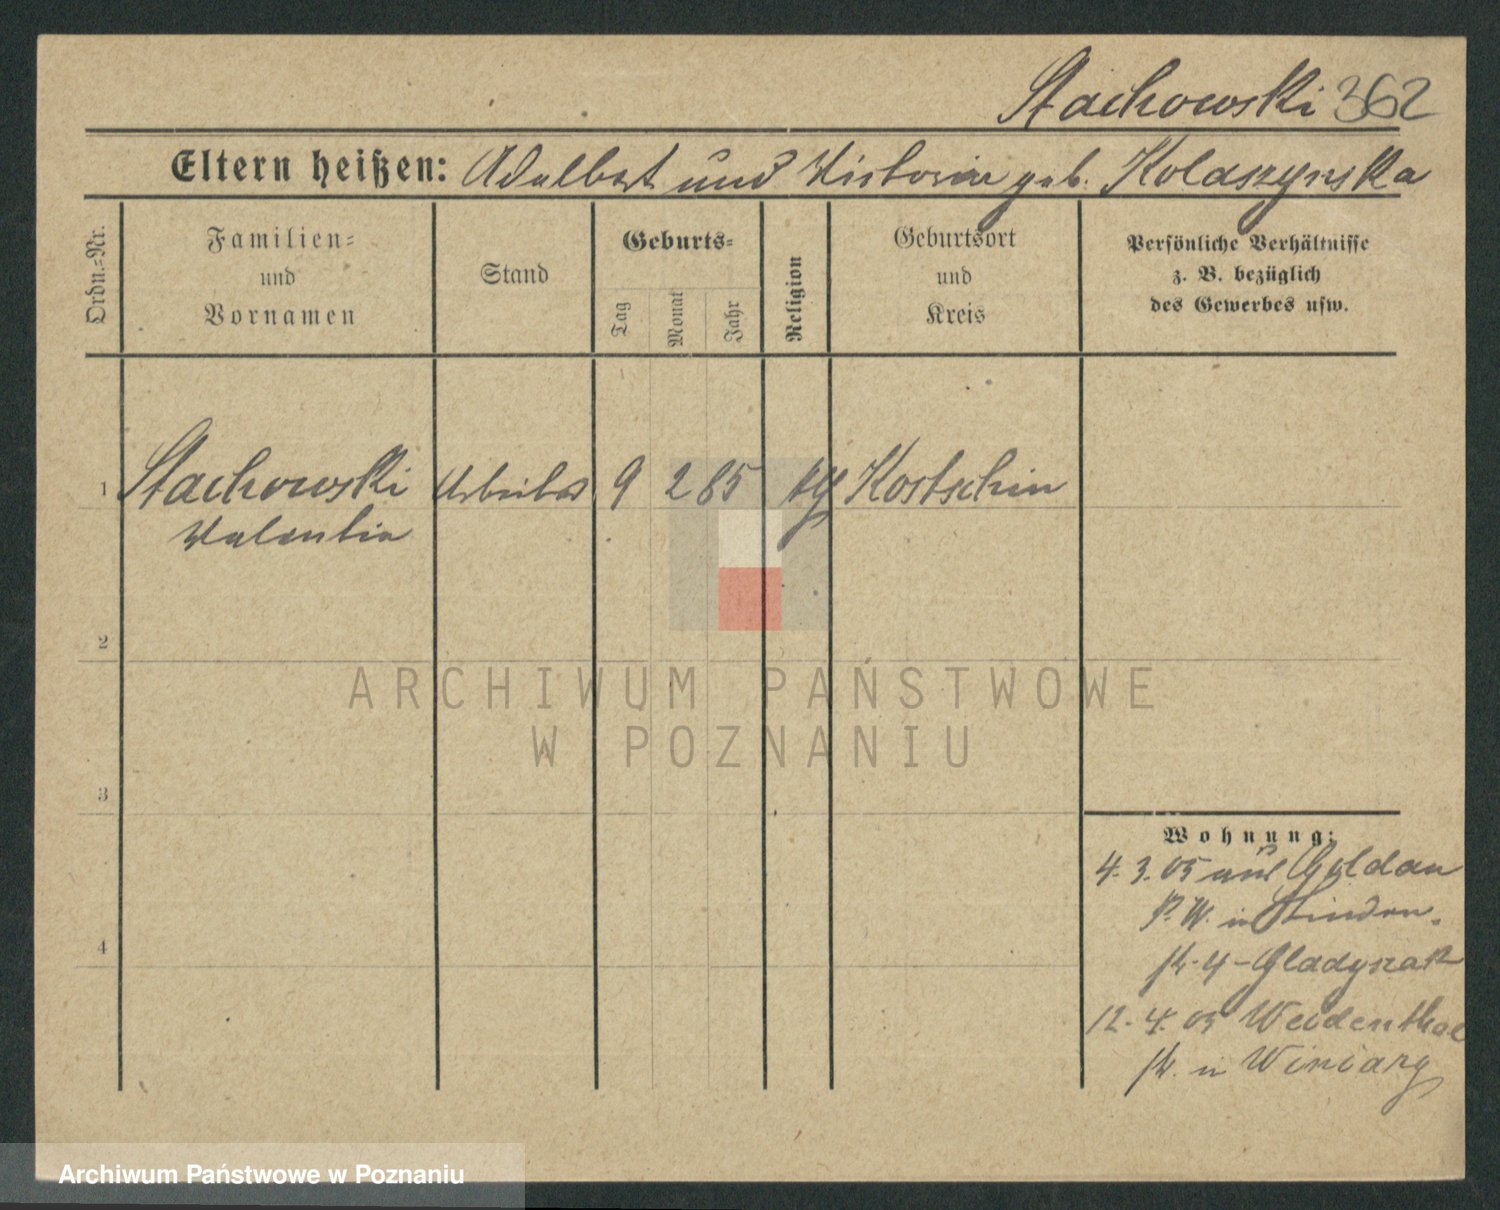 Stachowski 362
Eltern heißen: Adalbert und Victoria geb. Kolaszynska
Ordn.-Nr.
Familien-
und
Vornamen
Stand
Geburts-
Tag
Monat
Jahr
Religion
Geburtsort
und
Kreis
Persönliche Verhältnisse
z. B. bezüglich
des Gewerbes usw.
1 Stachowski Arbeiter 9 2 85 Kostschin
Valentin
2
ARCHIWUM PAŃSTWOWE
W POZNANIU
3
Wohnung:
4.3.05 aus Goldau
P. W. in Linden-
4
str. 4 - Gladyszak
12.4.05 Weidenthal
in Winiary
Archiwum Państwowe w Poznaniu